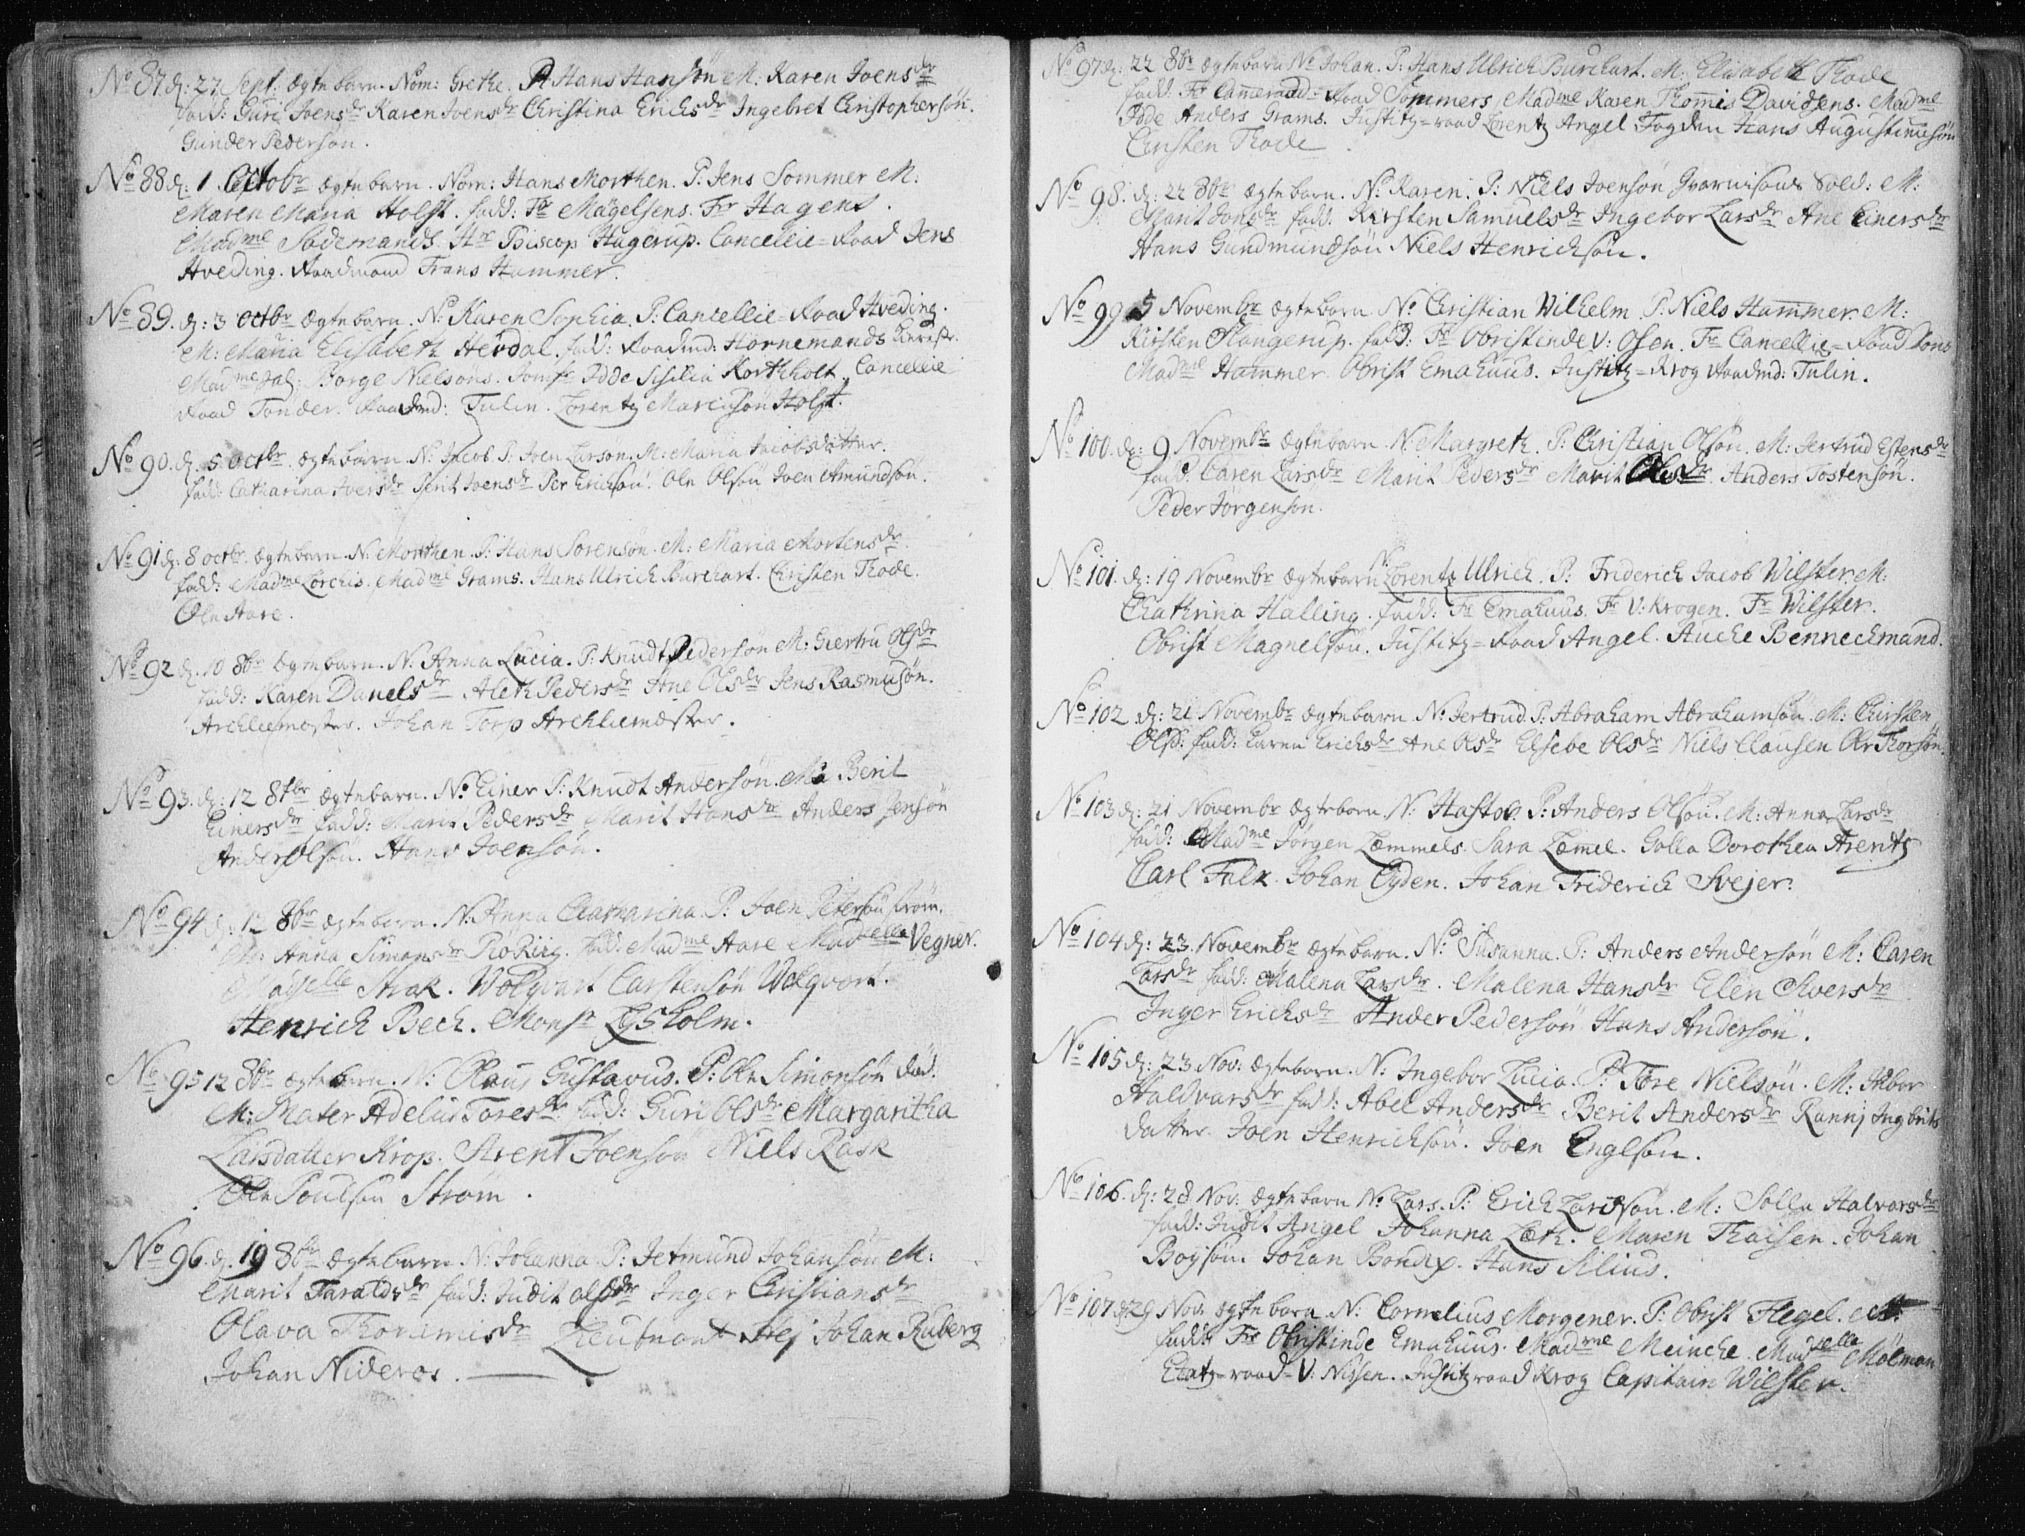 No 87. d: 27 Sept: ægte barn. Nom: Grethe. P: Hans Hansøn M: Karen Joensdr
fadd: Guri Joensdr Karen Joensdr Christina Erichsdr Ingebret Christophersøn.
Gunder Pedersøn.
No 88 d: 1 Octobr ægte barn. Nom: Hans Morthen. P: Jens Sommer M:
Maren Maria Holst. fadd: Fr Mägelsens. Fr Hagens.
Madme Sademands. Hr Biscop Hagerup. Cancellie=Raad Jens
Hveding. Raadmand Frans Hammer.
No 89. d: 3 octbr ægte barn. No Karen Sophia. P: Cancellie=Raad Hveding.
M: Maria Elisabeth Hevdal. fadd: Raadmd: Hornemands
Madme Sal: Borge Nielsøns. Jomfr Idde Sisilia Korthholt. Cancellie
Raad Tonder. Raadmd: Tulin. Lorentz Marcusøn Holst.
No 90. d. 5 octbr. ægte barn. N: Jacob P: Joen Larsøn. M: Maria Jacobsdatter.
fadd: Catharina Iversdr Berit Joensdr Per Erichsøn. Ole Olsøn Joen Amundsøn.
No 91 d: 8 octbr. ægte barn. N: Morthen. P: Hans Sørensøn. M: Maria Mortensdr
fadd: Madme Lorchis. Madme Grams. Hans Ulrich Burchart. Christen Thode.
Ole Aare.
No 92 d. 10 8br ægte barn. N: Anna Lucia. P: Knudt Pedersøn M: Giertru Olsdr
fadd: Karen Danelsdr Aleth Pedersdr Ane Olsdr Jens Rasmusøn.
Archliemester. Johan Torp Archliemester.
No 93. d: 12 8tbr ægte barn. No Einer P: Knudt Andersøn. M: Berit
Einersdr fadd: Maria Pedersdr Marit Hansdr Anders Jensøn
Anders Olsøn. Hans Joensøn.
No 94 d: 12 8br ægte barn. N: Anna Chatharina. P: Joen Petersøn Strøm.
M: Anna Simonsdr Röking. fadd: Madme Aare Madselle Vegner.
Madselle Strak. Wolqvart Carstensøn Wolqvart.
Henrich Bech. Monsr Lysholm.
No 95 12 8br ægte barn. N: Claus Gustavus. P: Ole Simonsøn Död.
M: Mater Adelus Toresdr fadd: Guri Olsdr Margaritha
Larsdatter Krop. Arent Joensøn Niels Rask
Ole Poulsøn Strøm.
No 96. d. 19 8br ægte barn. N: Johanna P: Jetmund Johansøn M:
Marit Taraldsdr fadd: Judit Olsdr Inger Christiansdr
Olava Thoremisdr Lieutnant Frej Johan Ruberg
Johan Nideros.
No 97 d: 22 8br ægte barn No Johan. P: Hans Ulrich Burchart. M: Elisabeth Thode
fadd: Fr Cammeraad=Raad Sommers Madme Karen Thommis Davidsens. Madme
Idde Anders Grams. Justitz=raad Lorentz Angel Fogden Hans Augustinusøn
Christen Thode
No 98. d: 22 8br ægte barn. N: Karen. P: Niels Joensøn Gvarnisons Sold: M:
Marit Jonsdr fadd: Kirsten Samuelsdr Ingebor Larsdr Ane Einersdr
Hans Gundmundsøn Niels Henrichsøn.
No 99 5 Novembr ægte barn No Christian Wilhelm P: Niels Hammer. M:
Kirsten Plangerup. fadd: Fr Obristinde V: Osen. Fr Cancellie=Raad
Madme Hammer. Obrist Emahuus. Justitz=Krog Raadmd: Tulin.
No 100. d: 9 Novembr ægte barn. N: Margreth. P: Christian Olsøn. M: Jertrud Estensdr
fadd: Caren Larsdr Marit Pedersdr Marit Olesdr Anders Tostensøn.
Peder Jørgensøn.
No 101. d: 19 Novembr ægte barn No Lorentz Ulrich. P: Friderich Jacob Wilster. M:
Chathrina Halling. fadd: Fr Emahuus. Fr V: Krogen. Fr Wilster.
Obrist Magnelsøn. Justitz=Raad Angel. Auche Bennechmand.
No 102 d: 21 Novembr ægte barn No Jertrud P: Abraham Abrahamsøn. M: Chirsten
Olsd: fadd: Caren Erichsdr Ane Olsdr Elsebe Olsdr Niels Clausen Ole Thorsøn.
No 103 d: 21 Novembr ægte barn. N: Hastob. P: Anders Olsøn. M: Anna Larsdr
fadd: Madme Jørgen Læmmels. Sara Læmel. Golla Dorothea Arentz
Carl Falk. Johan Eyden. Johan Friderich Svejer.
No 104 d: 23. Novembr ægte barn. No Susanna. P: Anders Andersøn M: Caren
Larsdr fadd: Malena Larsdr. Malena Hansdr Elen Siversdr
Inger Erichsdr Ander Pedersøn Hans Andersøn.
No 105 d: 23. Nov: ægte barn. N: Ingebor Lucia. P: Tore Nielsøn. M: Ilbor
Haldvarsdr fadd: Abel Andersdr Berit Andersdr Rannj Ingbrits
datter. Joen Henrichsøn. Joen Englsøn.
No 106. d: 28 Nov: ægte barn No Lars. P: Erich Larsøn. M: Solla Halvorsdr
fadd: Judit Angel Johanna Læth. Maren Thaisen. Johan
Boysøn. Johan Bondix. Hans Silius.
No 107 d: 29 Nov: ægte barn. N: Cornelius Morgener. P: Obrist Flegel. M:
fadd: Fr Obristinde Emahuus. Madme Meincke. Madselle Mølman
Etatz=raad=V: Nissen. Justitzraad Krog Capitain Wilster.